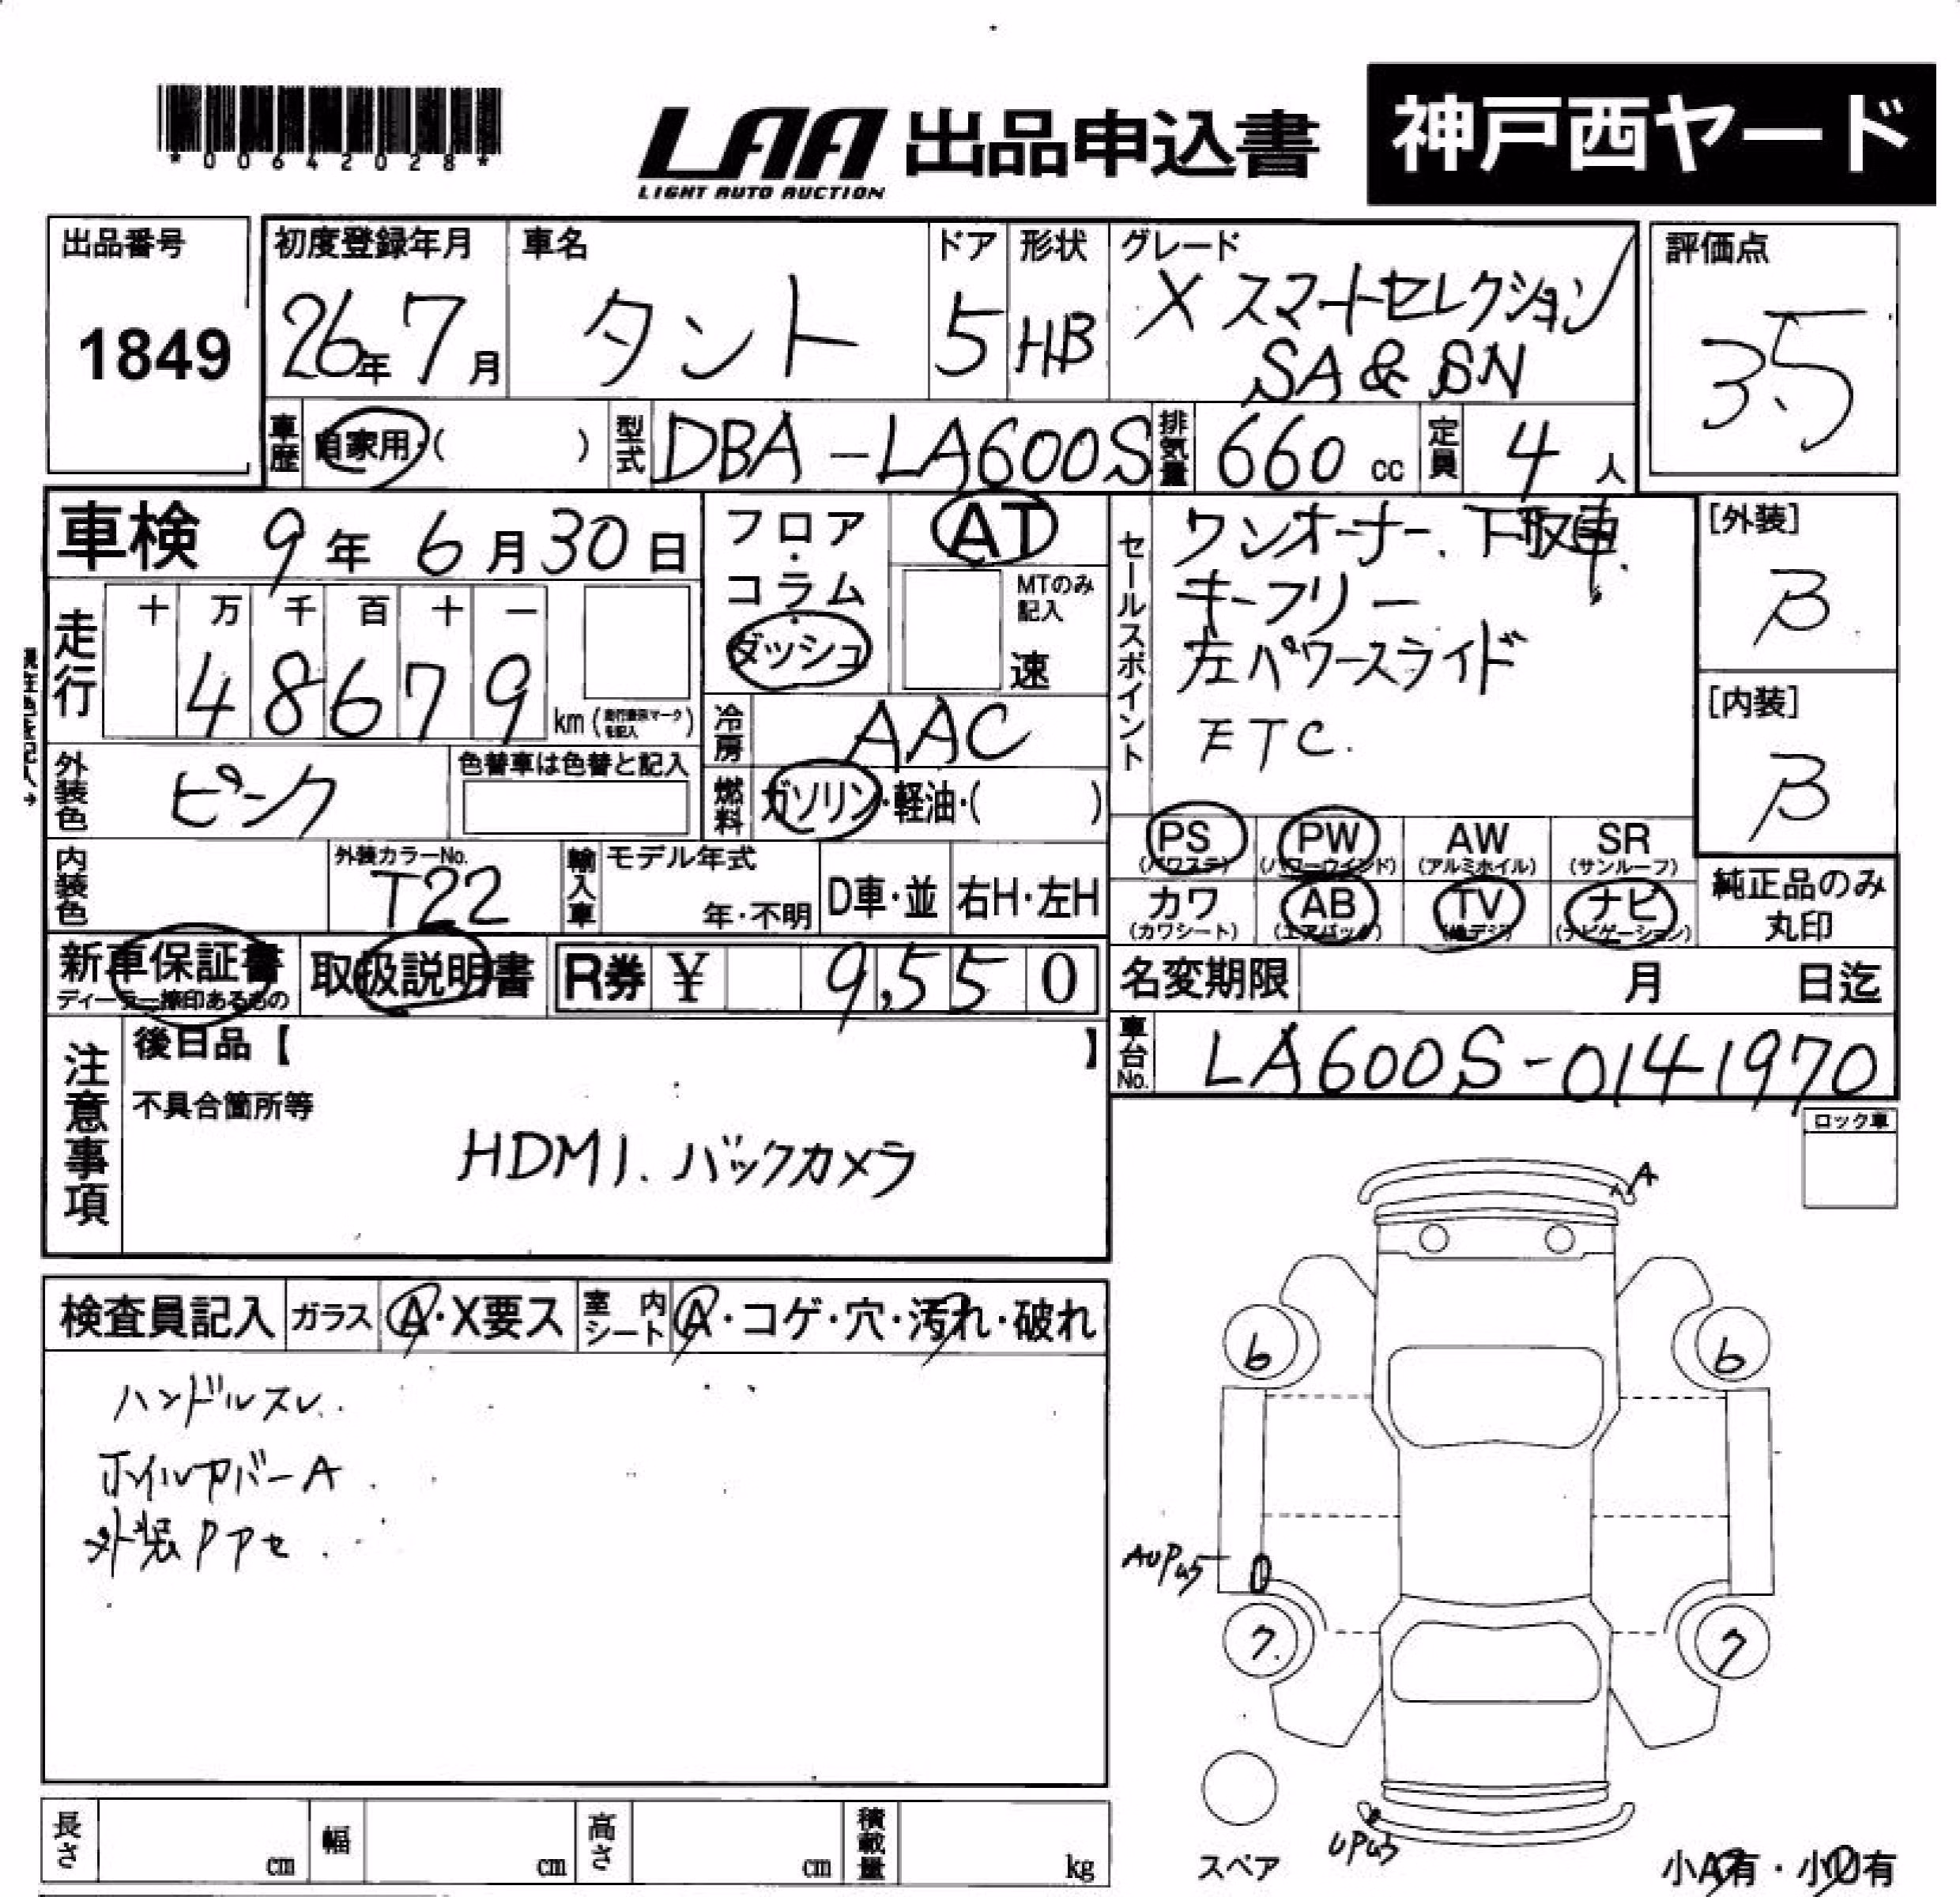 *00642028*
LAA 出品申込書 神戸西ヤード
LIGHT AUTO AUCTION
出品番号 1849
初度登録年月 26年 7月
車名 タント
ドア 5
形状 HB
グレード X スマートセレクション
SA & SN
評価点 3.5
車歴 自家用・( )
型式 DBA-LA600S
排気量 660 cc
定員 4 人
車検 9年 6月 30日
フロア・コラム・ダッシュ
AT
MTのみ記入 速
走行 十 万 千 百 十 一
4 8 6 7 9 km (走行表示マークを記入)
冷房 AAC
燃料 ガソリン・軽油・( )
外装色 ピンク
色替車は色替と記入
内装色
外装カラーNo. T22
輸入車 モデル年式 年・不明
D車・並 右H・左H
セールスポイント
ワンオーナー. 下取車.
キーフリー
左パワースライド
ETC.
[外装] B
[内装] B
PS (パワステ) PW (パワーウインド) AW (アルミホイル) SR (サンルーフ)
カワ (カワシート) AB (エアバッグ) TV (地デジ) ナビ (ナビゲーション)
純正品のみ丸印
新車保証書
取扱説明書
R券 ¥ 9,550
名変期限 月 日迄
車台No. LA600S-0141970
注意事項
後日品【 】
不具合箇所等
HDMI. バックカメラ
ロック車
検査員記入 ガラス A・X要ス 室内シート A・コゲ・穴・汚れ・破れ
ハンドルスレ.
ホイルカバーA
外装Pアセ
A
6 6
7. 7
スペア
小A有・小U有
長さ cm 幅 cm 高さ cm 積載量 kg